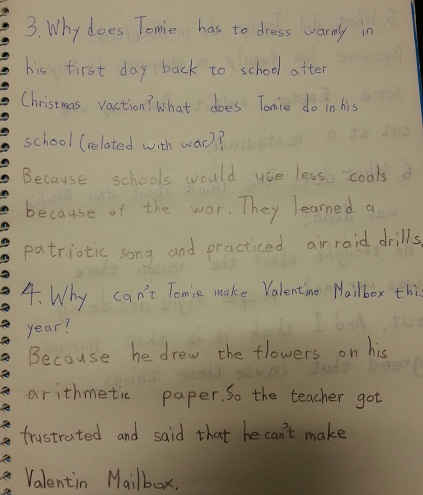 3. Why does Tomie has to dress warmly in
his first day back to school after
Christmas vaction? What does Tomie do in his
school (related with war)?
Because schools would use less coals
because of the war. They learned a
patriotic song and practiced air raid drills.
4. Why can't Tomie make Valentine Mailbox this
year?
Because he drew the flowers on his
arithmetic paper. So the teacher got
frustrated and said that he can't make
Valentin Mailbox.